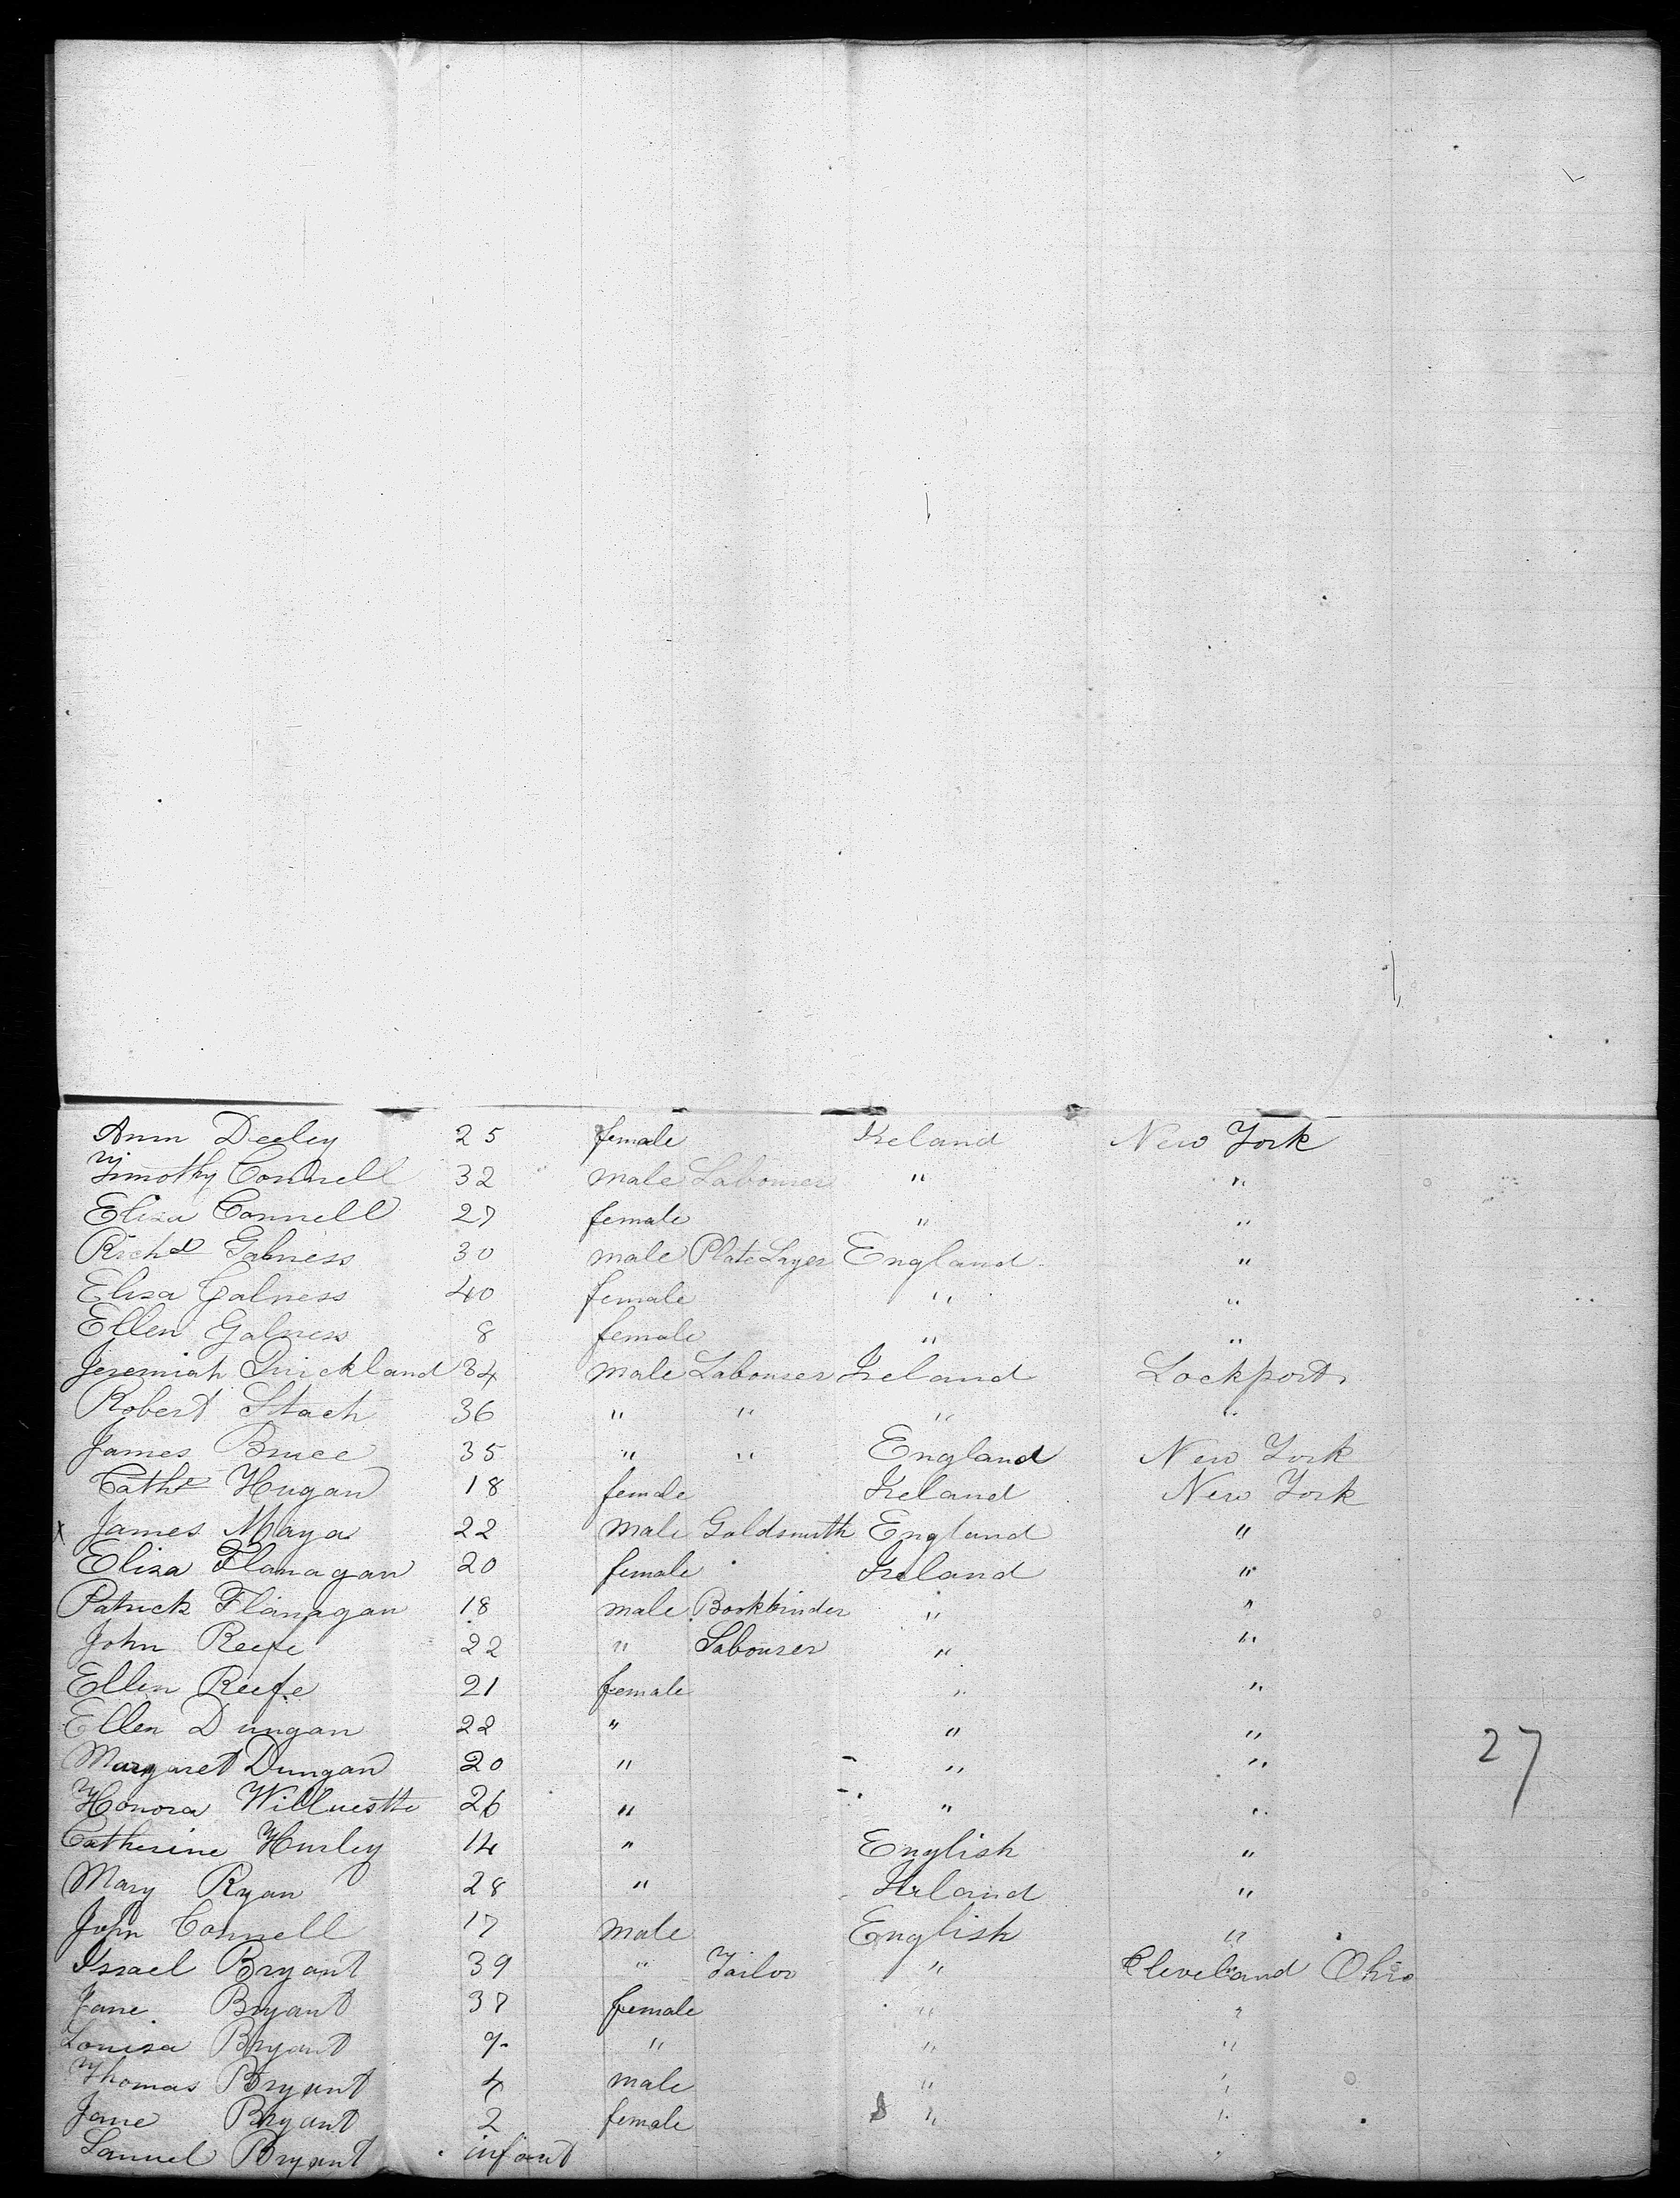 Ann Deeley 25 female Ireland New York
Timothy Connell 32 male Labourer " "
Eliza Connell 27 female " "
Richd Galness 30 male Plate Layer England "
Eliza Galness 40 female " "
Ellen Galness 8 female " "
Jeremiah Quickland 34 male Labourer Ireland Lockport
Robert Stach 36 " " " "
James Bruce 35 " " England New York
Cathe Hugan 18 female Ireland New York
x James Maya 22 male Goldsmith England "
Eliza Flanagan 20 female Ireland "
Patrick Flanagan 18 male Bookbinder " "
John Reefe 22 " Labourer " "
Ellen Reefe 21 female " "
Ellen Dungan 22 " " "
Margaret Dungan 20 " " " 27
Honora 26 " " "
Catherine Hurley 14 " English "
Mary Ryan 28 " Ireland "
John Connell 17 male English "
Israel Bryant 39 " Tailor " Cleveland Ohio
Jane Bryant 37 female " "
Louisa Bryant " " "
Thomas Bryant 4 male " "
Jane Bryant 2 female " "
Samuel Bryant infant "